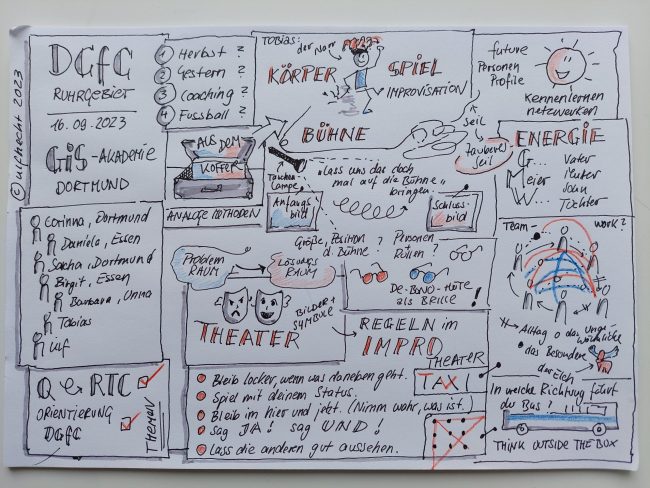 © ulfhecht 2023
DGfC
RUHRGEBIET
16.09.2023
GiS-AKADEMIE
DORTMUND
1 Herbst ?
2 Gestern ?
3 Coaching ?
4 Fussball ?
TOBIAS:
der Narr
KÖRPER
SPIEL
IMPROVISATION
BÜHNE
seil
Zauberseil
future
Personen
Profile
Kennenlernen
netzwerken
AUS DEM
KOFFER
ANALOGE METHODEN
Taschen
Lampe
"Lass uns das doch
mal auf die Bühne"
bringen
Anfangs
bild
Schluss-
bild
ENERGIE
G...
Meier
W...
Vater
Mutter
Sohn
Tochter
Corinna, Dortmund
Daniela, Essen
Sascha, Dortmund
Birgit, Essen
Barbara, Unna
Tobias
Ulf
Problem
RAUM
LÖSUNGS
RAUM
Größe, Position
d. Bühne?
Personen +
Rollen?
DE-BONO-HÜTE
als BRILLE!
BILDER+
SYMBOLE
THEATER
REGELN im
IMPRO
THEATER
Team-
work?
Alltag
das Besondere
der Elch
Q RTC
ORIENTIERUNG
DGfC
THEMEN
Bleib locker, wenn was daneben geht.
Spiel mit deinem Status.
Bleib im hier und jetzt. (Nimm wahr, was ist.)
Sag JA! sag UND!
Lass die anderen gut aussehen.
TAXI
In welche Richtung fährt
der Bus?
THINK OUTSIDE THE BOX